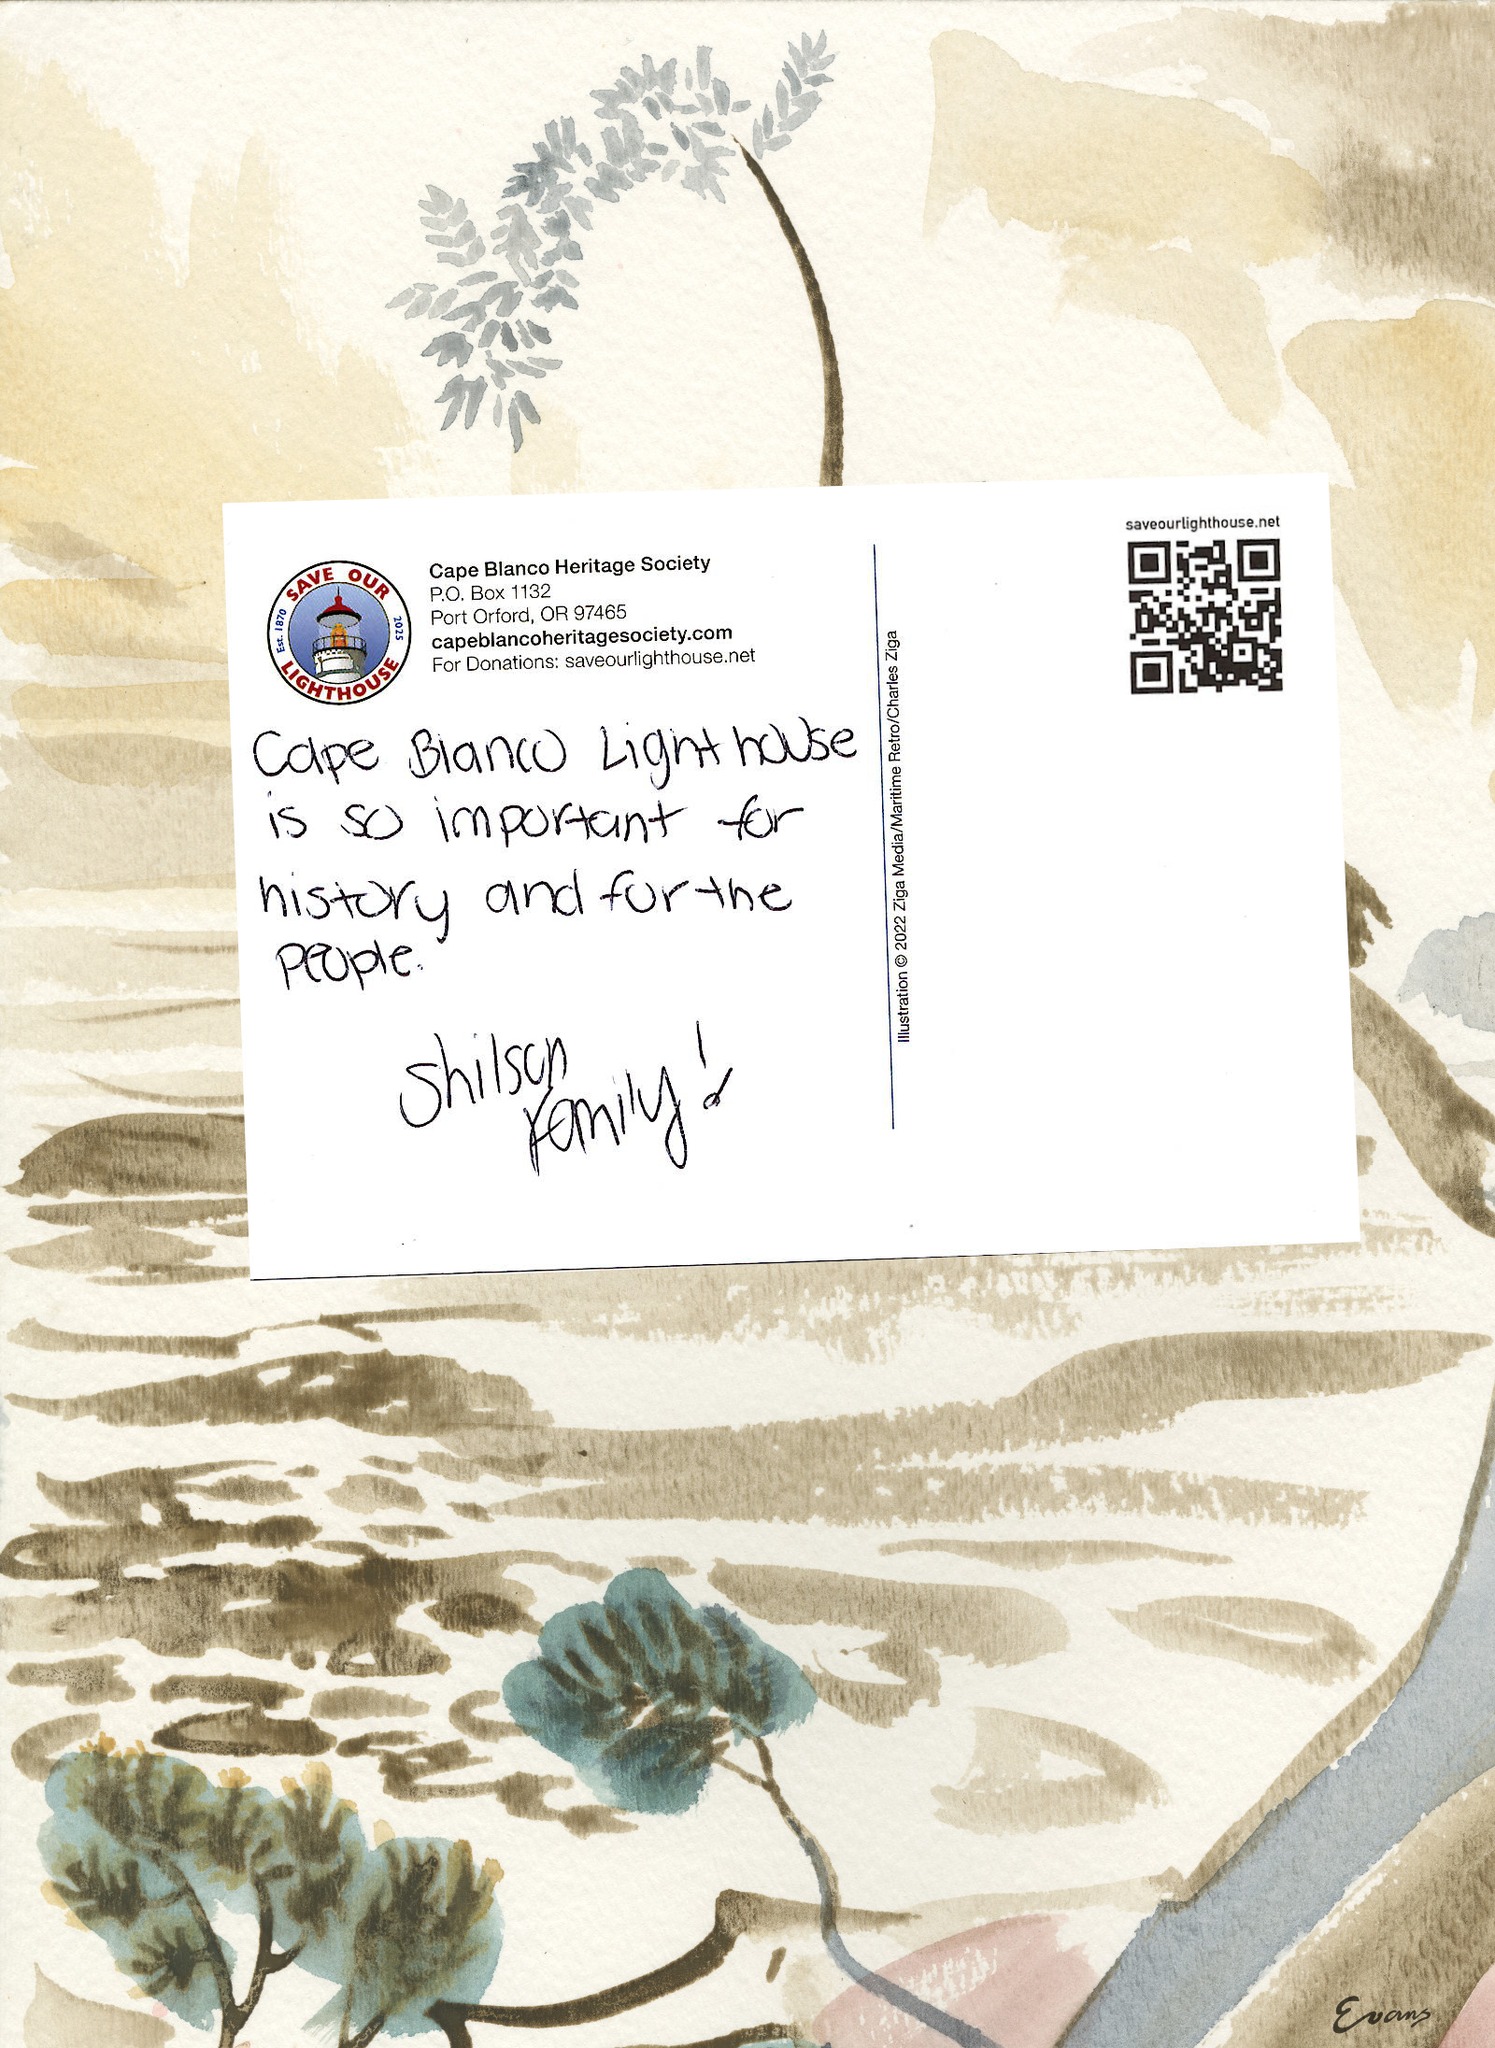 saveourlighthouse.net
SAVE OUR
LIGHTHOUSE
Est. 1870
2025
Cape Blanco Heritage Society
P.O. Box 1132
Port Orford, OR 97465
capeblancoheritagesociety.com
For Donations: saveourlighthouse.net
Cape Blanco Lighthouse
is so important for
history and for the
people.
Shilson
Family!
Illustration © 2022 Ziga Media/Maritime Retro/Charles Ziga
Evans